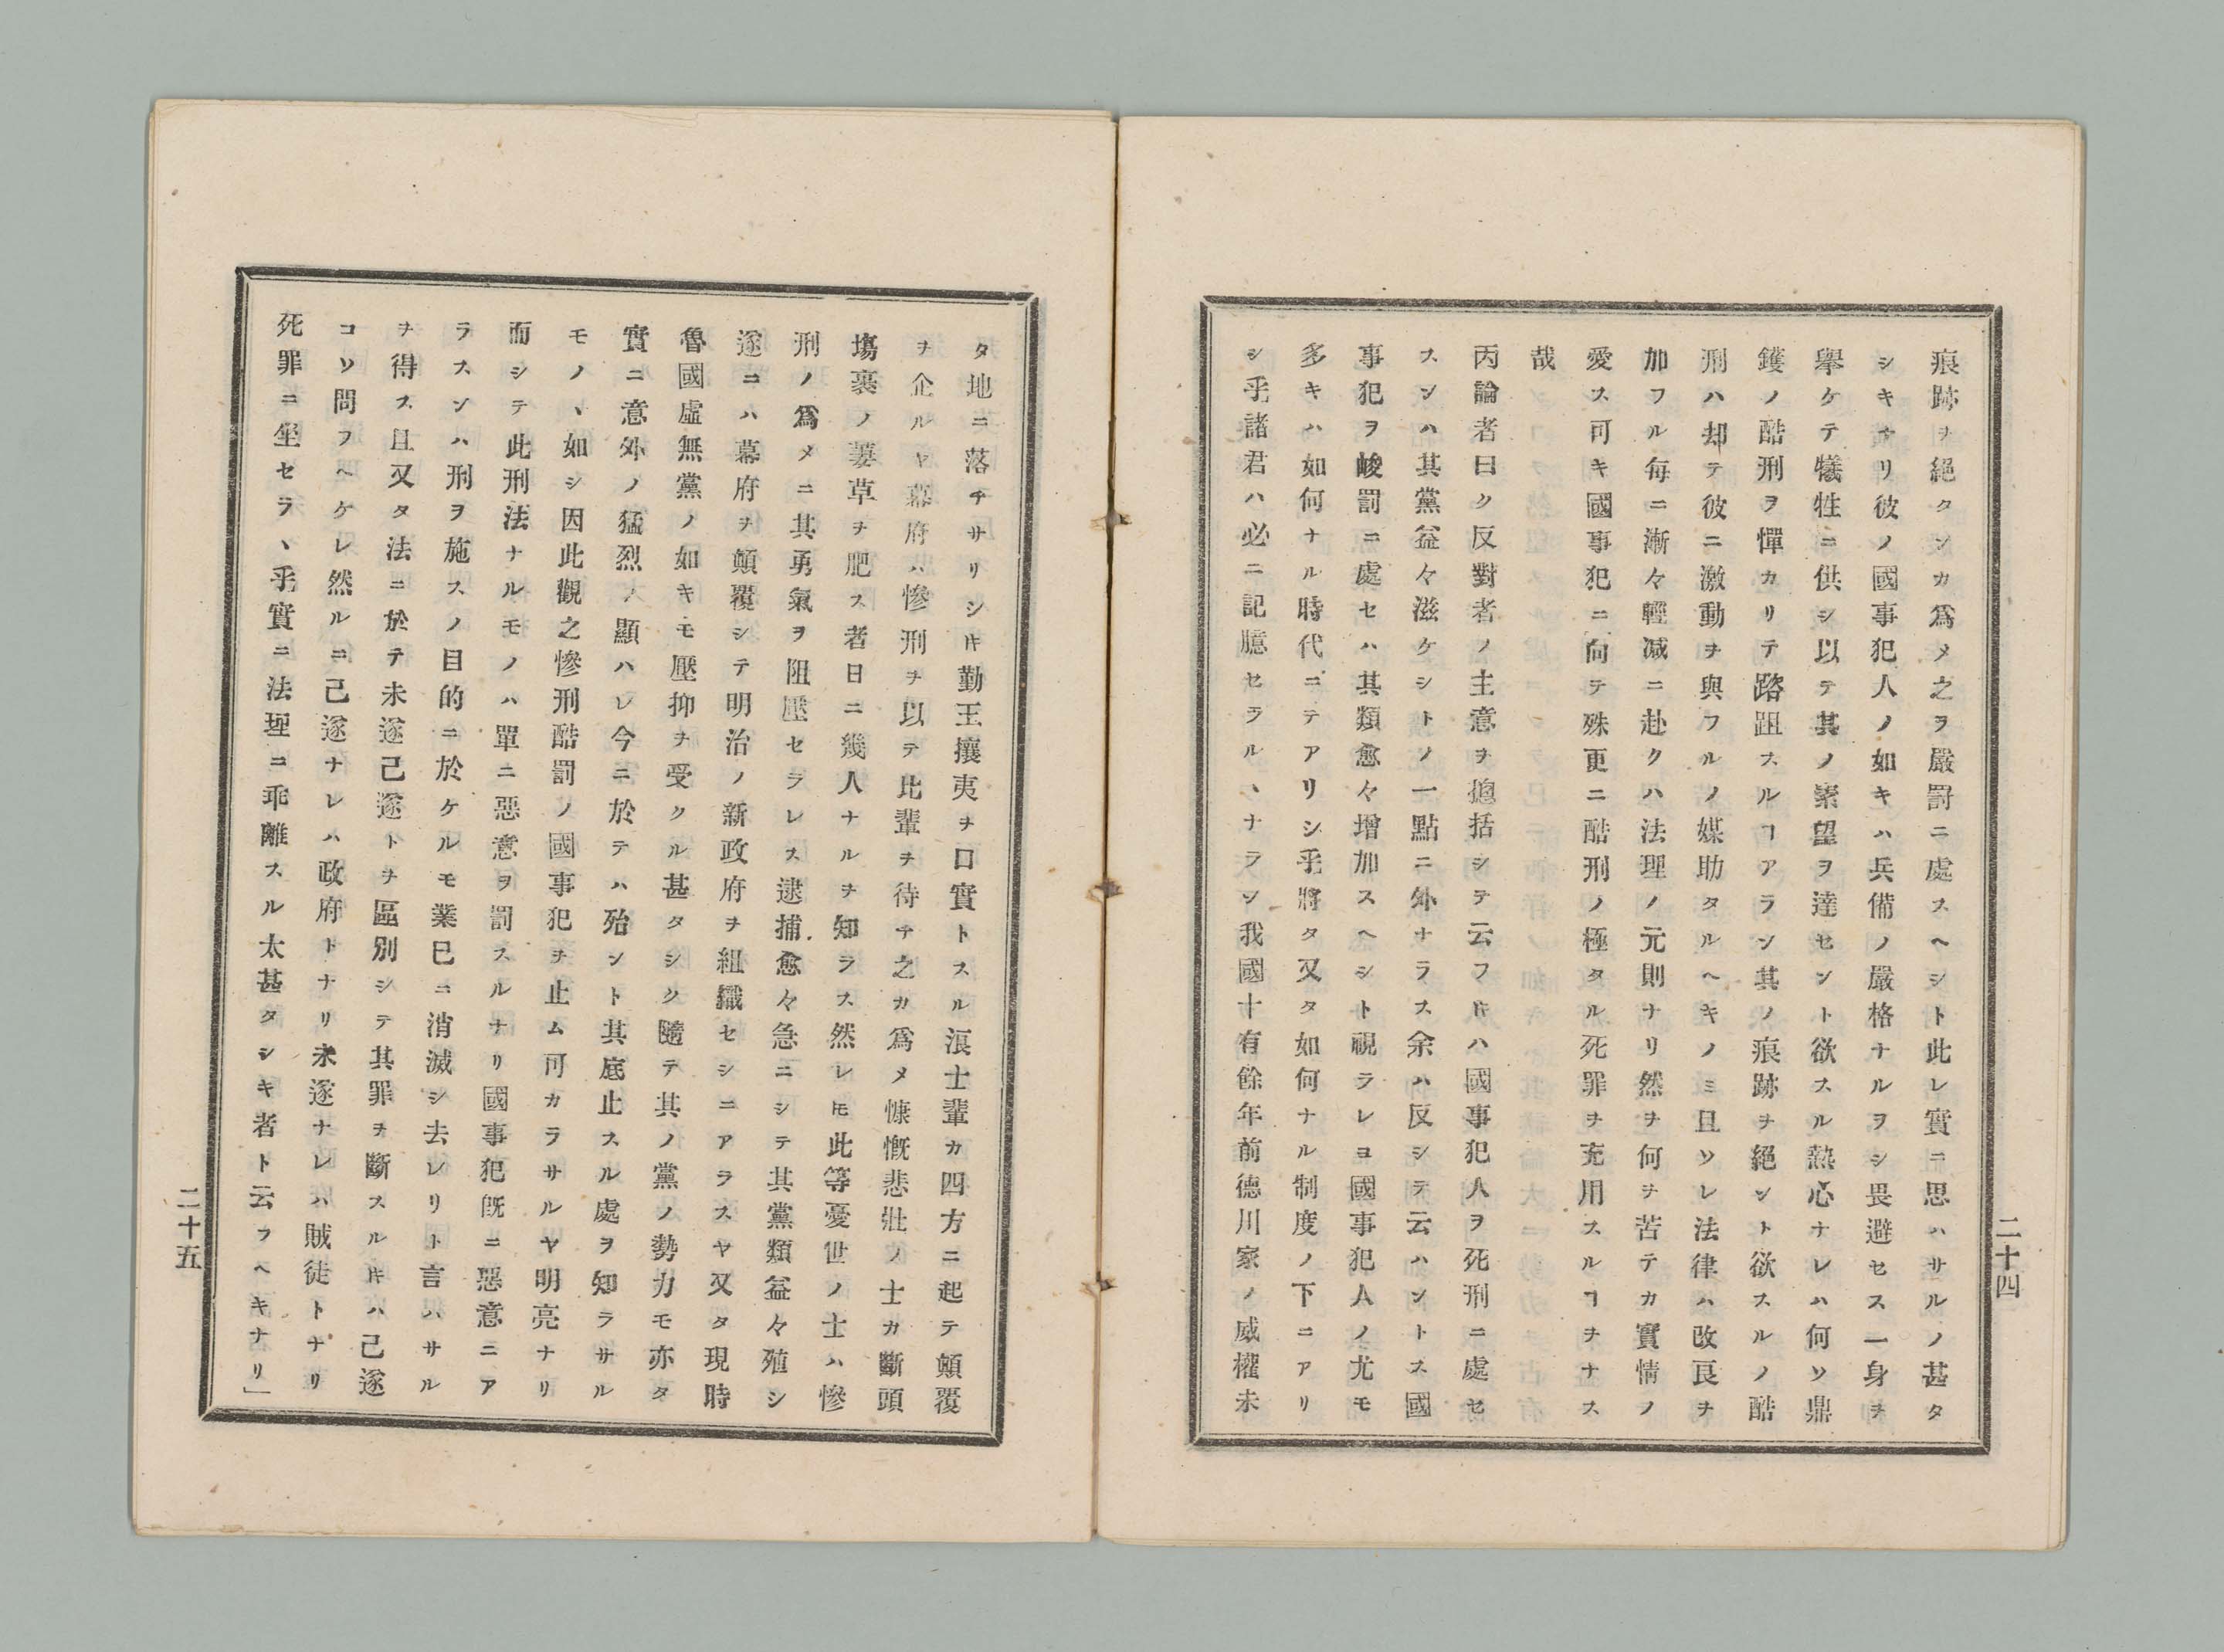 痕跡ヲ絕タンカ爲メ之ヲ嚴罰ニ處スヘシト此レ實ニ思ハサルノ甚タ
シキナリ彼ノ國事犯人ノ如キハ兵備ノ嚴格ナルヲシ畏避セス一身ヲ
擧ケテ犧牲ニ供シ以テ其ノ素望ヲ達セント欲スル熱心ナレハ何ソ鼎
鑊ノ酷刑ヲ憚カリテ踏阻スルヿアラン其ノ痕跡ヲ絕ント欲スルノ酷
刑ハ却テ彼ニ激動ヲ與フルノ媒助タルヘキノミ且ソレ法律ハ改良ヲ
加フル每ニ漸々輕减ニ赴クハ法理ノ元則ナリ然ヲ何ヲ苦テカ實情ノ
愛ス可キ國事犯ニ向テ殊更ニ酷刑ノ極タル死罪ヲ充用スルヿヲナス
哉
丙論者曰ク反對者ノ主意ヲ摠括シテ云フ𪜈ハ國事犯人ヲ死刑ニ處セ
スンハ其黨益々滋ケシトノ一點ニ外ナラス余ハ反シテ云ハントス國
事犯ヲ峻罰ニ處セハ其類愈々增加スヘシト視ラレヨ國事犯人ノ尤モ
多キハ如何ナル時代ニテアリシ乎將タ又タ如何ナル制度ノ下ニアリ
シ乎諸君ハ必ニ記臆セラル丶ナラン我國十有餘年前德川家ノ威權未
二十四
タ地ニ落チサリシ𪜈勤王攘夷ヲ口實トスル浪士輩カ四方ニ起テ顛覆
ヲ企ルヤ幕府ハ慘刑ヲ以テ比輩ヲ待チ之カ爲メ慷慨悲壯ノ士カ斷頭
塲裹ノ萋草ヲ肥ス者日ニ幾人ナルヲ知ラス然レ𪜈此等憂世ノ士ハ慘
刑ノ爲メニ其勇氣ヲ阻壓セラレス逮捕愈々急ニシテ其黨類益々殖シ
遂ニハ幕府ヲ顛覆シテ明治ノ新政府ヲ組織セシニアラスヤ又タ現時
魯國虛無黨ノ如キモ壓抑ヲ受クル甚タシク隨テ其ノ黨ノ勢力モ亦タ
實ニ意外ノ猛烈ヲ顯ハレ今ニ於テハ殆ント其底止スル處ヲ知ラサル
モノ丶如シ因此觀之慘刑酷罰ノ國事犯ヲ止ム可カラサルヤ明亮ナリ
而シテ此刑法ナルモノハ單ニ惡意ヲ罰スルナリ國事犯既ニ惡意ニア
ラスンハ刑ヲ施スノ目的ニ於ケルモ業已ニ消滅シ去レリト言ハサル
ヲ得ス且又タ法ニ於テ未遂己遂トヲ區別シテ其罪ヲ斷スル𪜈ハ己遂
コソ問フヘケレ然ルニ己遂ナレハ政府トナリ未遂ナレハ賊徒トナリ
死罪ニ坐セラ丶乎實ニ法理ニ乖離スル太甚タシキ者ト云フヘキナリ」
二十五